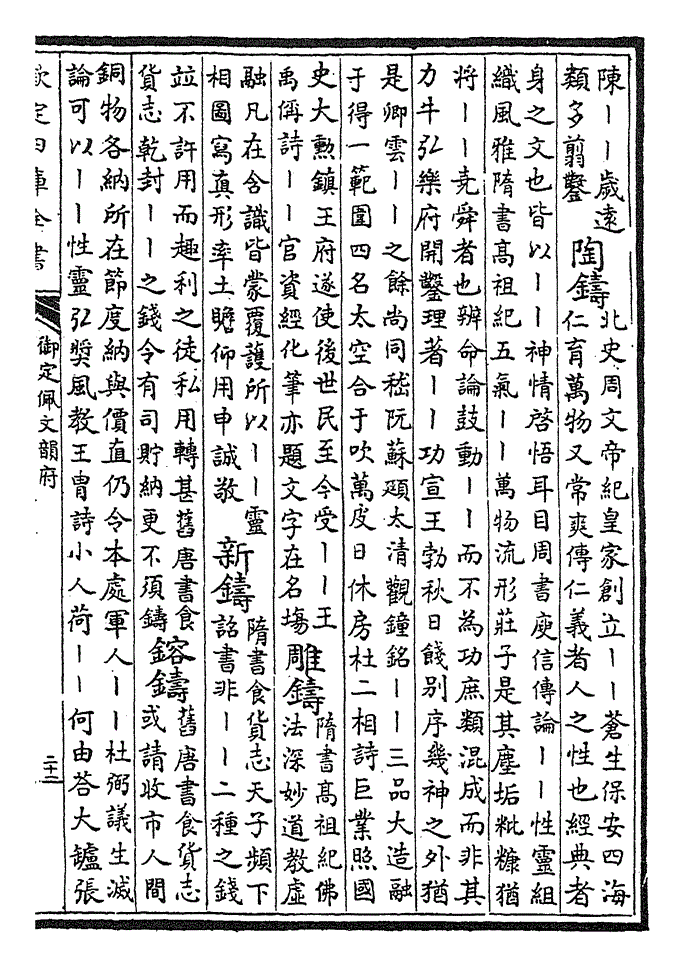 陳丨丨歲遠
類多翦鑿
陶鑄
北史周文帝紀皇家創立丨丨蒼生保安四海
仁育萬物又常爽傳仁義者人之性也經典者
身之文也皆以丨丨神情啓悟耳目周書庾信傳論丨丨性靈組
織風雅隋書高祖紀五氣丨丨萬物流形莊子是其塵垢粃糠猶
將丨丨堯舜者也辨命論鼓動丨丨而不為功庶類混成而非其
力牛弘樂府開鑿理著丨丨功宣王勃秋日餞別序幾神之外猶
是卿雲丨丨之餘尚同嵇阮蘇頲太清觀鐘銘丨丨三品大造融
于得一範圍四名太空合于吹萬皮日休房杜二相詩巨業照國
史大勲鎮王府遂使後世民至今受丨丨王
禹偁詩丨丨官資經化筆亦題文字在名塲
雕鑄
隋書高祖紀佛
法深妙道教虛
融凡在含識皆蒙覆護所以丨丨靈
相圖寫真形率土瞻仰用申誠敬
新鑄
隋書食貨志天子頻下
詔書非丨丨二種之錢
並不許用而趣利之徒私用轉甚舊唐書食
貨志乾封丨丨之錢令有司貯納更不須鑄
鎔鑄
舊唐書食貨志
或請收市人間
銅物各納所在節度納與價直仍令本處軍人丨丨杜弼議生滅
論可以丨丨性靈弘奬風教王胄詩小人荷丨丨何由答大鑪張
欽定四庫全書
御定佩文韻府
二十二